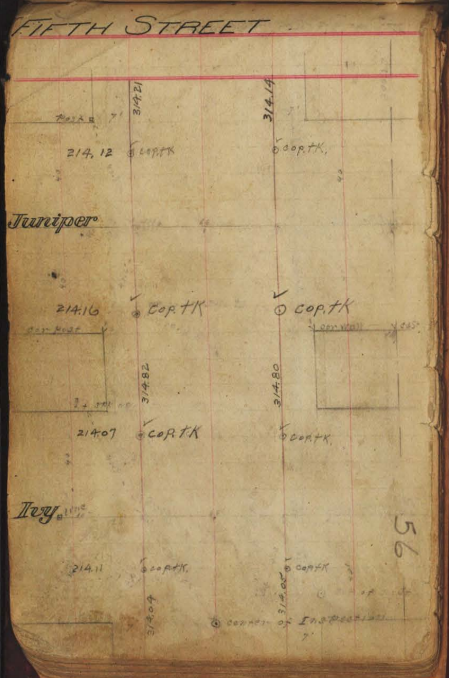 FIFTH STREET
314.21 314.14
7' 7'
214.12 Cop.tK Cop.tK.
40 40
Juniper
214.16 Cop.tK Cop.tK
314.82 314.80
214.07 Cop.tK Cop.tK
Ivy
56
214.11 Cop.tK Cop.tK
314.04 314.02
center of Inspection
7'